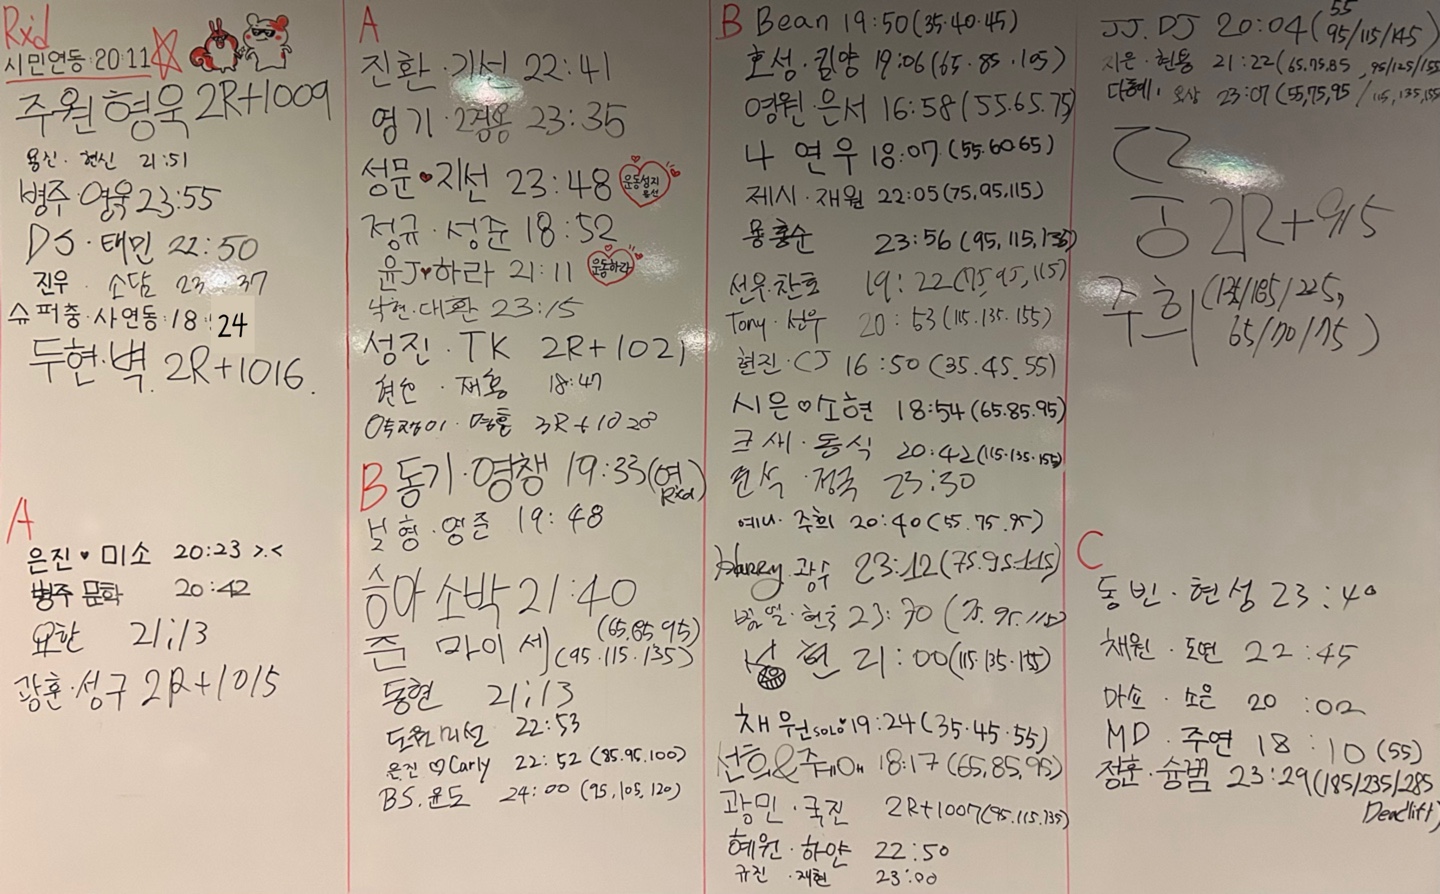 Rxd
시민연동:20:11
주원 형욱 2R+1009
용신·현신 21:51
병주·영욱 23:55
DS·태민 22:50
진우 소담 23:37
슈퍼충·사연동:18:24
두현·벽 2R+1016.
A
은진♥미소 20:23 >.<
병주 문학 20:42
요한 21;13
광훈·성구 2R+1015
A
진환·기선 22:41
영기· 23:35
성문♥지선 23:48 운동성지
정규·성준 18:52
윤J♥하라 21:11 운동하라
낙현·대환 23:15
성진·TK 2R+1021
18:47
3R+1020
B 동기·영챙 19:33(여 Rxd)
보형·영준 19:48
승아 소박 21:40
(65.85.95)
즌 마이세 (95.115.135)
동현 21;13
도원 미선 22:53
은진♡Carly 22:52 (85.95.100)
BS.윤도 24:00 (95,105,120)
B Bean 19:50(35·40·45)
호성·김양 19:06(65·85·105)
영원·은서 16:58(55.65.75)
나 연우 18:07(55.60.65)
제시·재원 22:05(75,95,115)
용홍순 23:56(95,115,135)
선우·찬호 19:22(75,95,115)
Tony·선우 20:53(115·135·155)
현진·CJ 16:50(35.45.55)
시은♡소현 18:54(65.85.95)
크새·동식 20:42(115·135·155)
윤석·정국 23:30
예나·주희 20:40(55.75.95)
Harry 광수 23:12(75.95.115)
범열·현우 23:30 (75.95.115)
현 21:00(115·135·155)
채원 SOLO♥19:24(35·45·55)
선호& 18:17(65,85,95)
광민·국진 2R+1007(95.115.135)
혜원·하얀 22:50
규진·재현 23:00
JJ.DJ 20:04(55 95/115/145)
지은·현용 21:22(65.75.85, 95/125/155
다혜, 23:07(55,75,95/115,135,155
중 2R+915
주희(135/185/225,
65/70/75)
C
동빈·현성 23:40
채원·도연 22:45
마쇼·소은 20:02
MD·주연 18:10(55)
정훈·슝범 23:29(185/235/285
Deadlift)